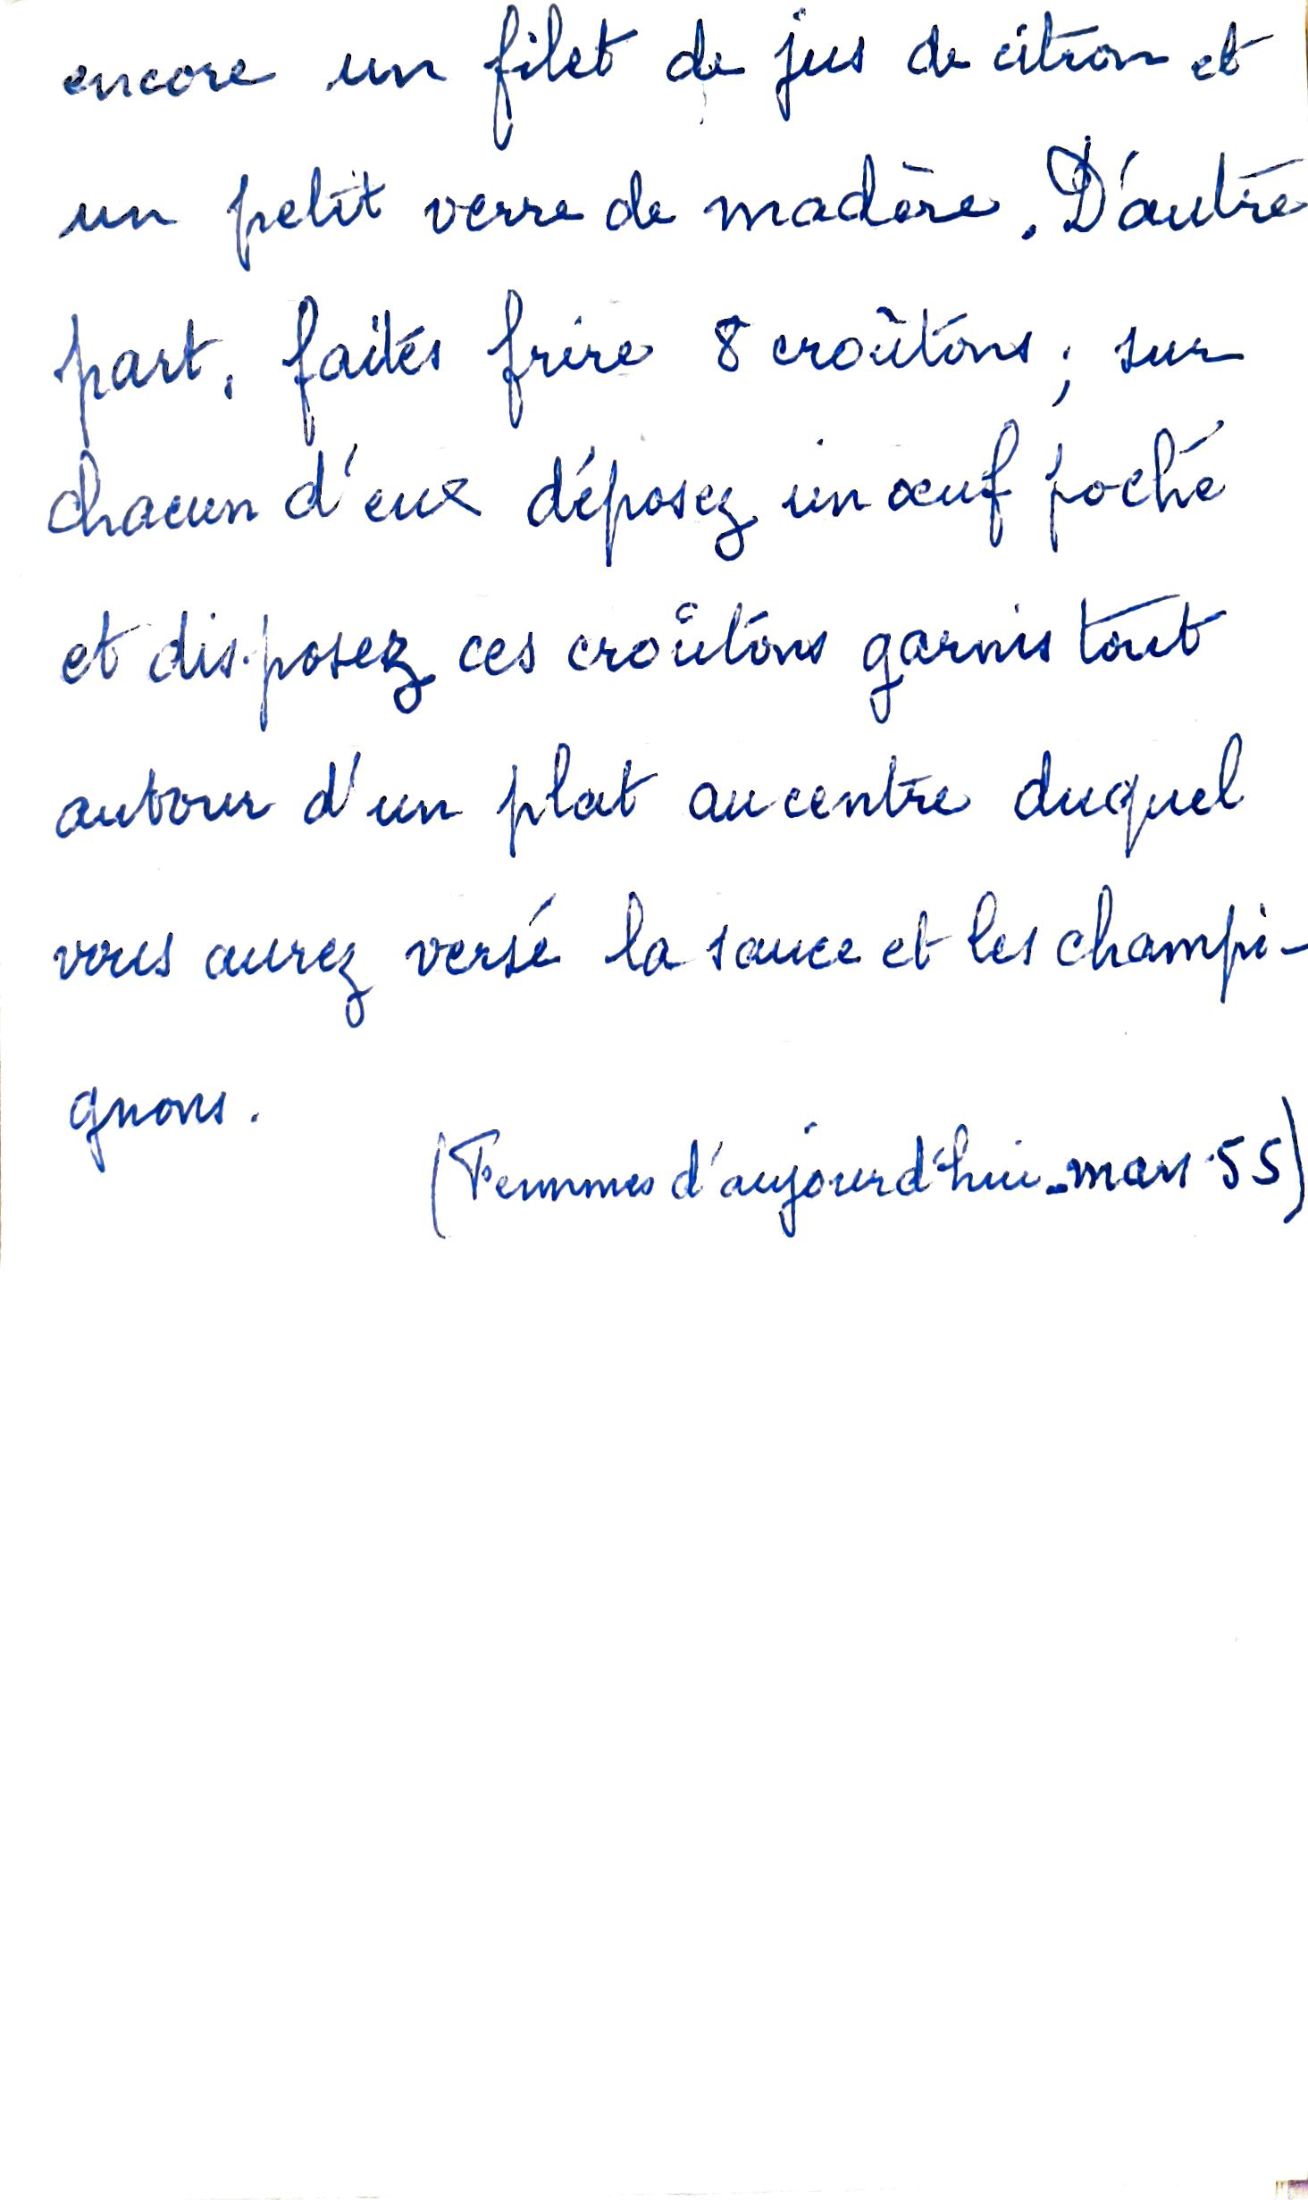 encore un filet de jus de citron et
un petit verre de madère. D'autre
part, faites frire 8 croûtons ; sur
chacun d'eux déposez un œuf poché
et disposez ces croûtons garnis tout
autour d'un plat au centre duquel
vous aurez versé la sauce et les champi-
gnons.
(Femmes d'aujourd'hui - mars 55)